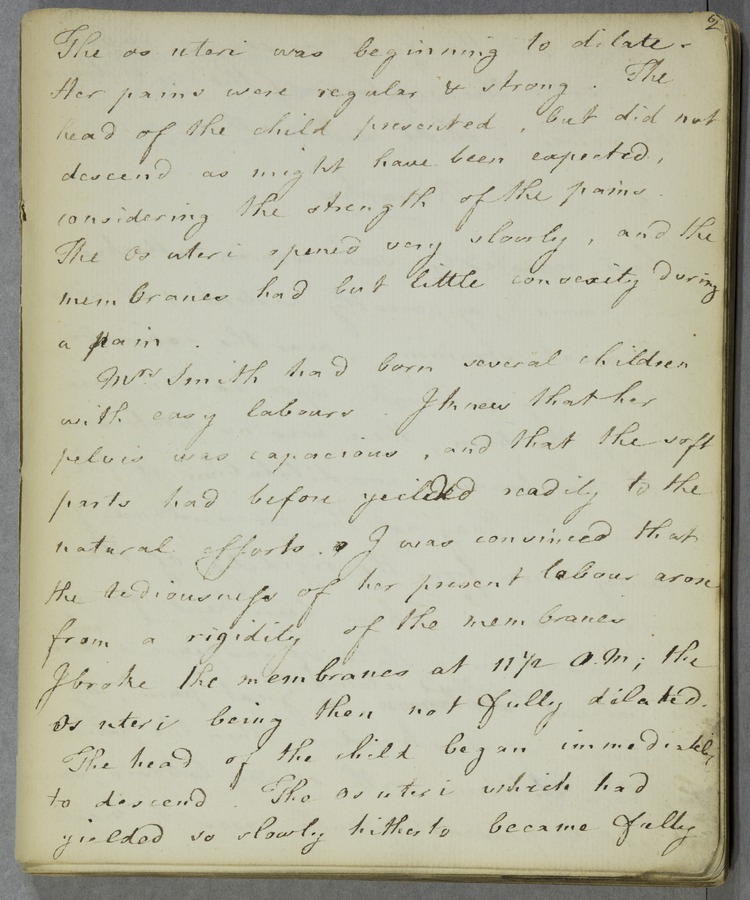 2
The os uteri was beginning to dilate.
Her pains were regular & strong. The
head of the child presented, but did not
descend as might have been expected,
considering the strength of the pains.
The os uteri opened very slowly, and the
membranes had but little convexity during
a pain.
Mrs Smith had born several children
with easy labours. I knew that her
pelvis was capacious, and that the soft
parts had before yeilded readily to the
natural efforts. I was convinced that
the tediousness of her present labour arose
from a rigidity of the membranes
I broke the membranes at 11 1/2 A.M; the
Os uteri being then not fully dilated.
The head of the child began immediately
to descend. The os uteri which had
yielded so slowly hitherto became fully